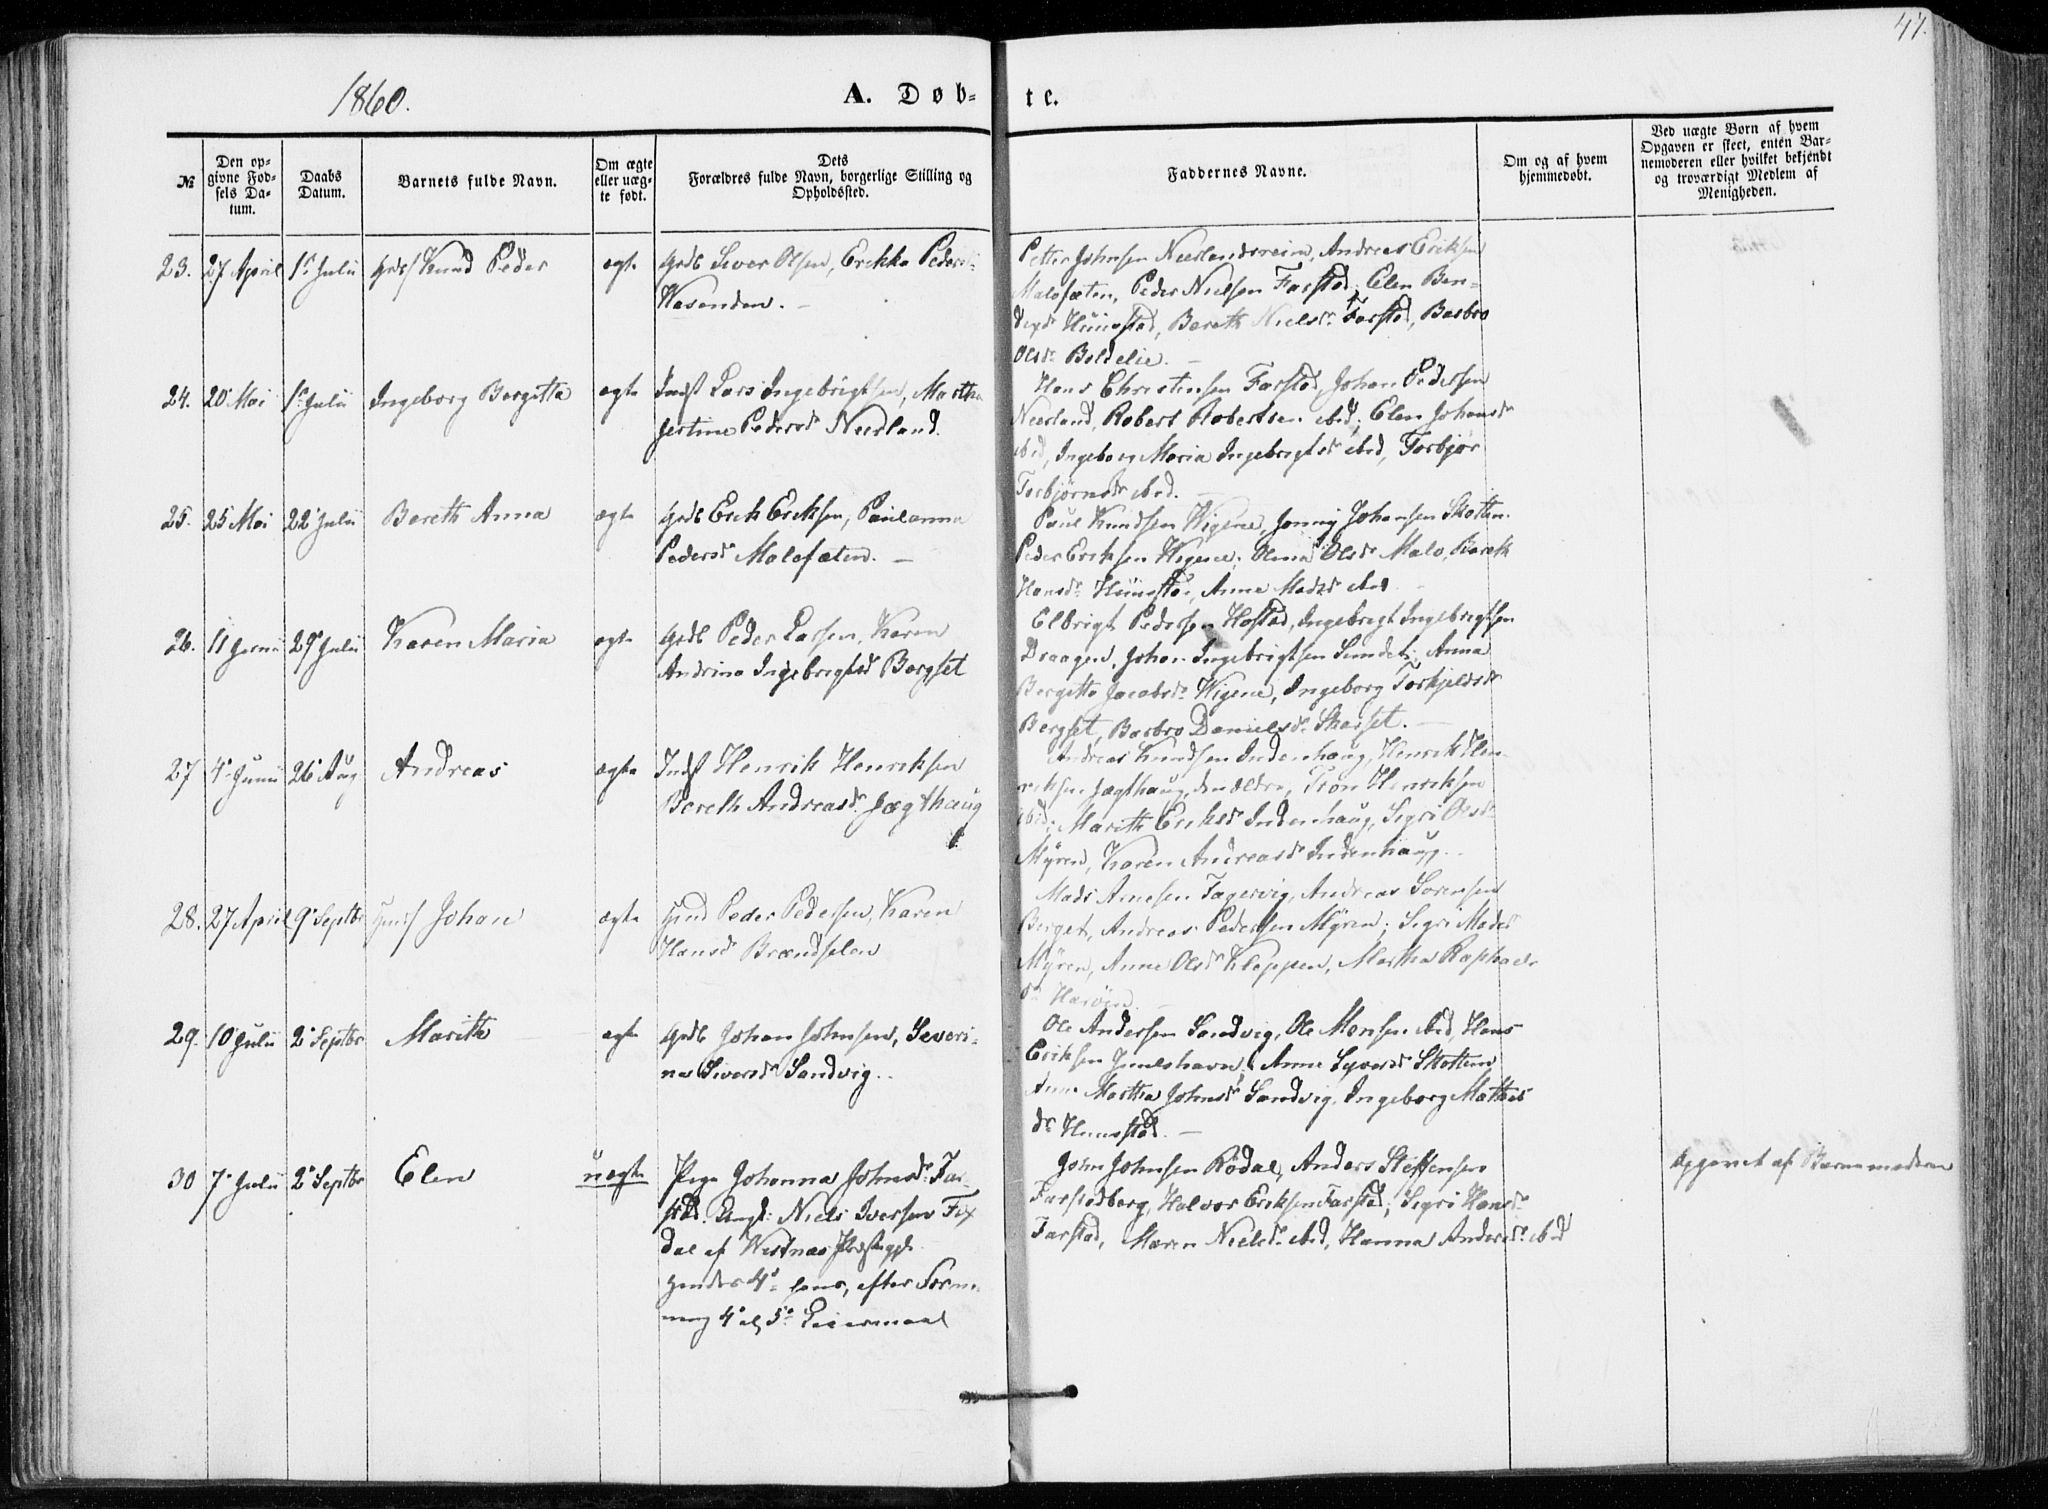 47.
1860.
A. Døb-
te.
№
Den op-
givne Fød-
sels Da-
tum.
Daabs
Datum.
Barnets fulde Navn.
Om ægte
eller uæg-
te født.
Dets
Forældres fulde Navn, borgerlige Stilling og
Opholdssted.
Faddernes Navne.
Om og af hvem
hjemmedøbt.
Ved uægte Børn af hvem
Opgaven er skeet, enten Bar-
nemoderen eller hvilket bekjendt
og troværdigt Medlem af
Menigheden.
23. 27 April 1 Julii Knud Peder ægte Grdb Siver Olsen, Erikka Peders
Vasenden. —
Petter Johnsen Neerlandsreim, Andreas Eriksen
Malosæten, Peder Nielsen Farstad, Elen Ben-
Hunstad, Bereth Nielsdr Farstad, Barbro
Olsdr Boldelie. —
24. 20 Mai 1 Julii Ingeborg Bergitta ægte Indst Lars Ingebrigtsen, Martha
Jertine Pedersdr Neerland.
Hans Christensen Farstad, Johan Pedersen
Neerland, Robert Robertsen ibid, Elen Johansdr
ibid, Ingeborg Maria Ingebrigtsdr ibid, Torbjør
Torbjørnsdr ibid.
25. 25 Mai 22 Julii Bereth Anna ægte Grdb Erik Eriksen, Paulanna
Pedersdr Malosæten. —
Paul Knudsen Vigene, Johansen Skotten
Peder Eriksen Vigene, Olsdr Malo, Bereth
Hansdr Hunstad, Anne Madsdr ibid
26. 11 Junii 29 Julii Karen Maria ægte Grdb Peder Larsen, Karen
Andrina Ingebrigtsd Bergset
Elbrigt Pedersen Hostad, Ingebrigt Ingebrigtsen
Draagen, Johan Ingebrigtsen Sundet, Anna
Bergitta Jacobsdr Vigene, Ingeborg Torkjeldsdr
Bergset, Barbro Danielsdr Skarset. —
27 4 Junii 26 Aug Andreas ægte Indst Henrik Henriksen
Bereth Andreasdr Jægthaug
Andreas Knudsen Indenhaug, Henrik Hen-
riksen Jægthaug, den Ældre, Tron Henriksen
ibid, Marith Eriksdr Indenhaug, Sigri Olsdr
Myren, Karen Andreasdr Indenhaug.
28. 27 April 9 Septbr Johan ægte Peder Pedersen, Karen
Hansd Brændselen
Mads Arnesen Fagervig, Andreas Sørensen
Berget, Andreas Pedersen Myren, Sigri Madsdr
Myren, Anne Olsdr Kleppen, Martha Raphaels
dr Harøen.
29. 10 Julii 2 Septbr Marith ægte Grdb Johan Johnsen, Severi-
na Siversdr Sandvig.
Ole Andersen Sandvig, Ole Monsen ibid, Hans
Eriksen Juulshavn, Anne Syversd Skotten
Anne Martha Johnsdr Sandvig, Ingeborg Mathis
dr Hunstad. —
30 7 Julii 2 Septbr Elen uægte Pige Johanna Johnsdr Far-
stad. Ungk: Niels Iversen Fix
dal af Vestnæs Præstegjld.
Hendes 4de, hans, efter Forme-
ning 4de el 5te Leiermaal
John Johnsen Rødal, Anders Steffensen
Farstadberg, Halvor Eriksen Farstad, Sigri Hansdr
Farstad, Maren Nielsdr ibid, Hanna Andersdr ibid
Opgivet af Barnemoderen